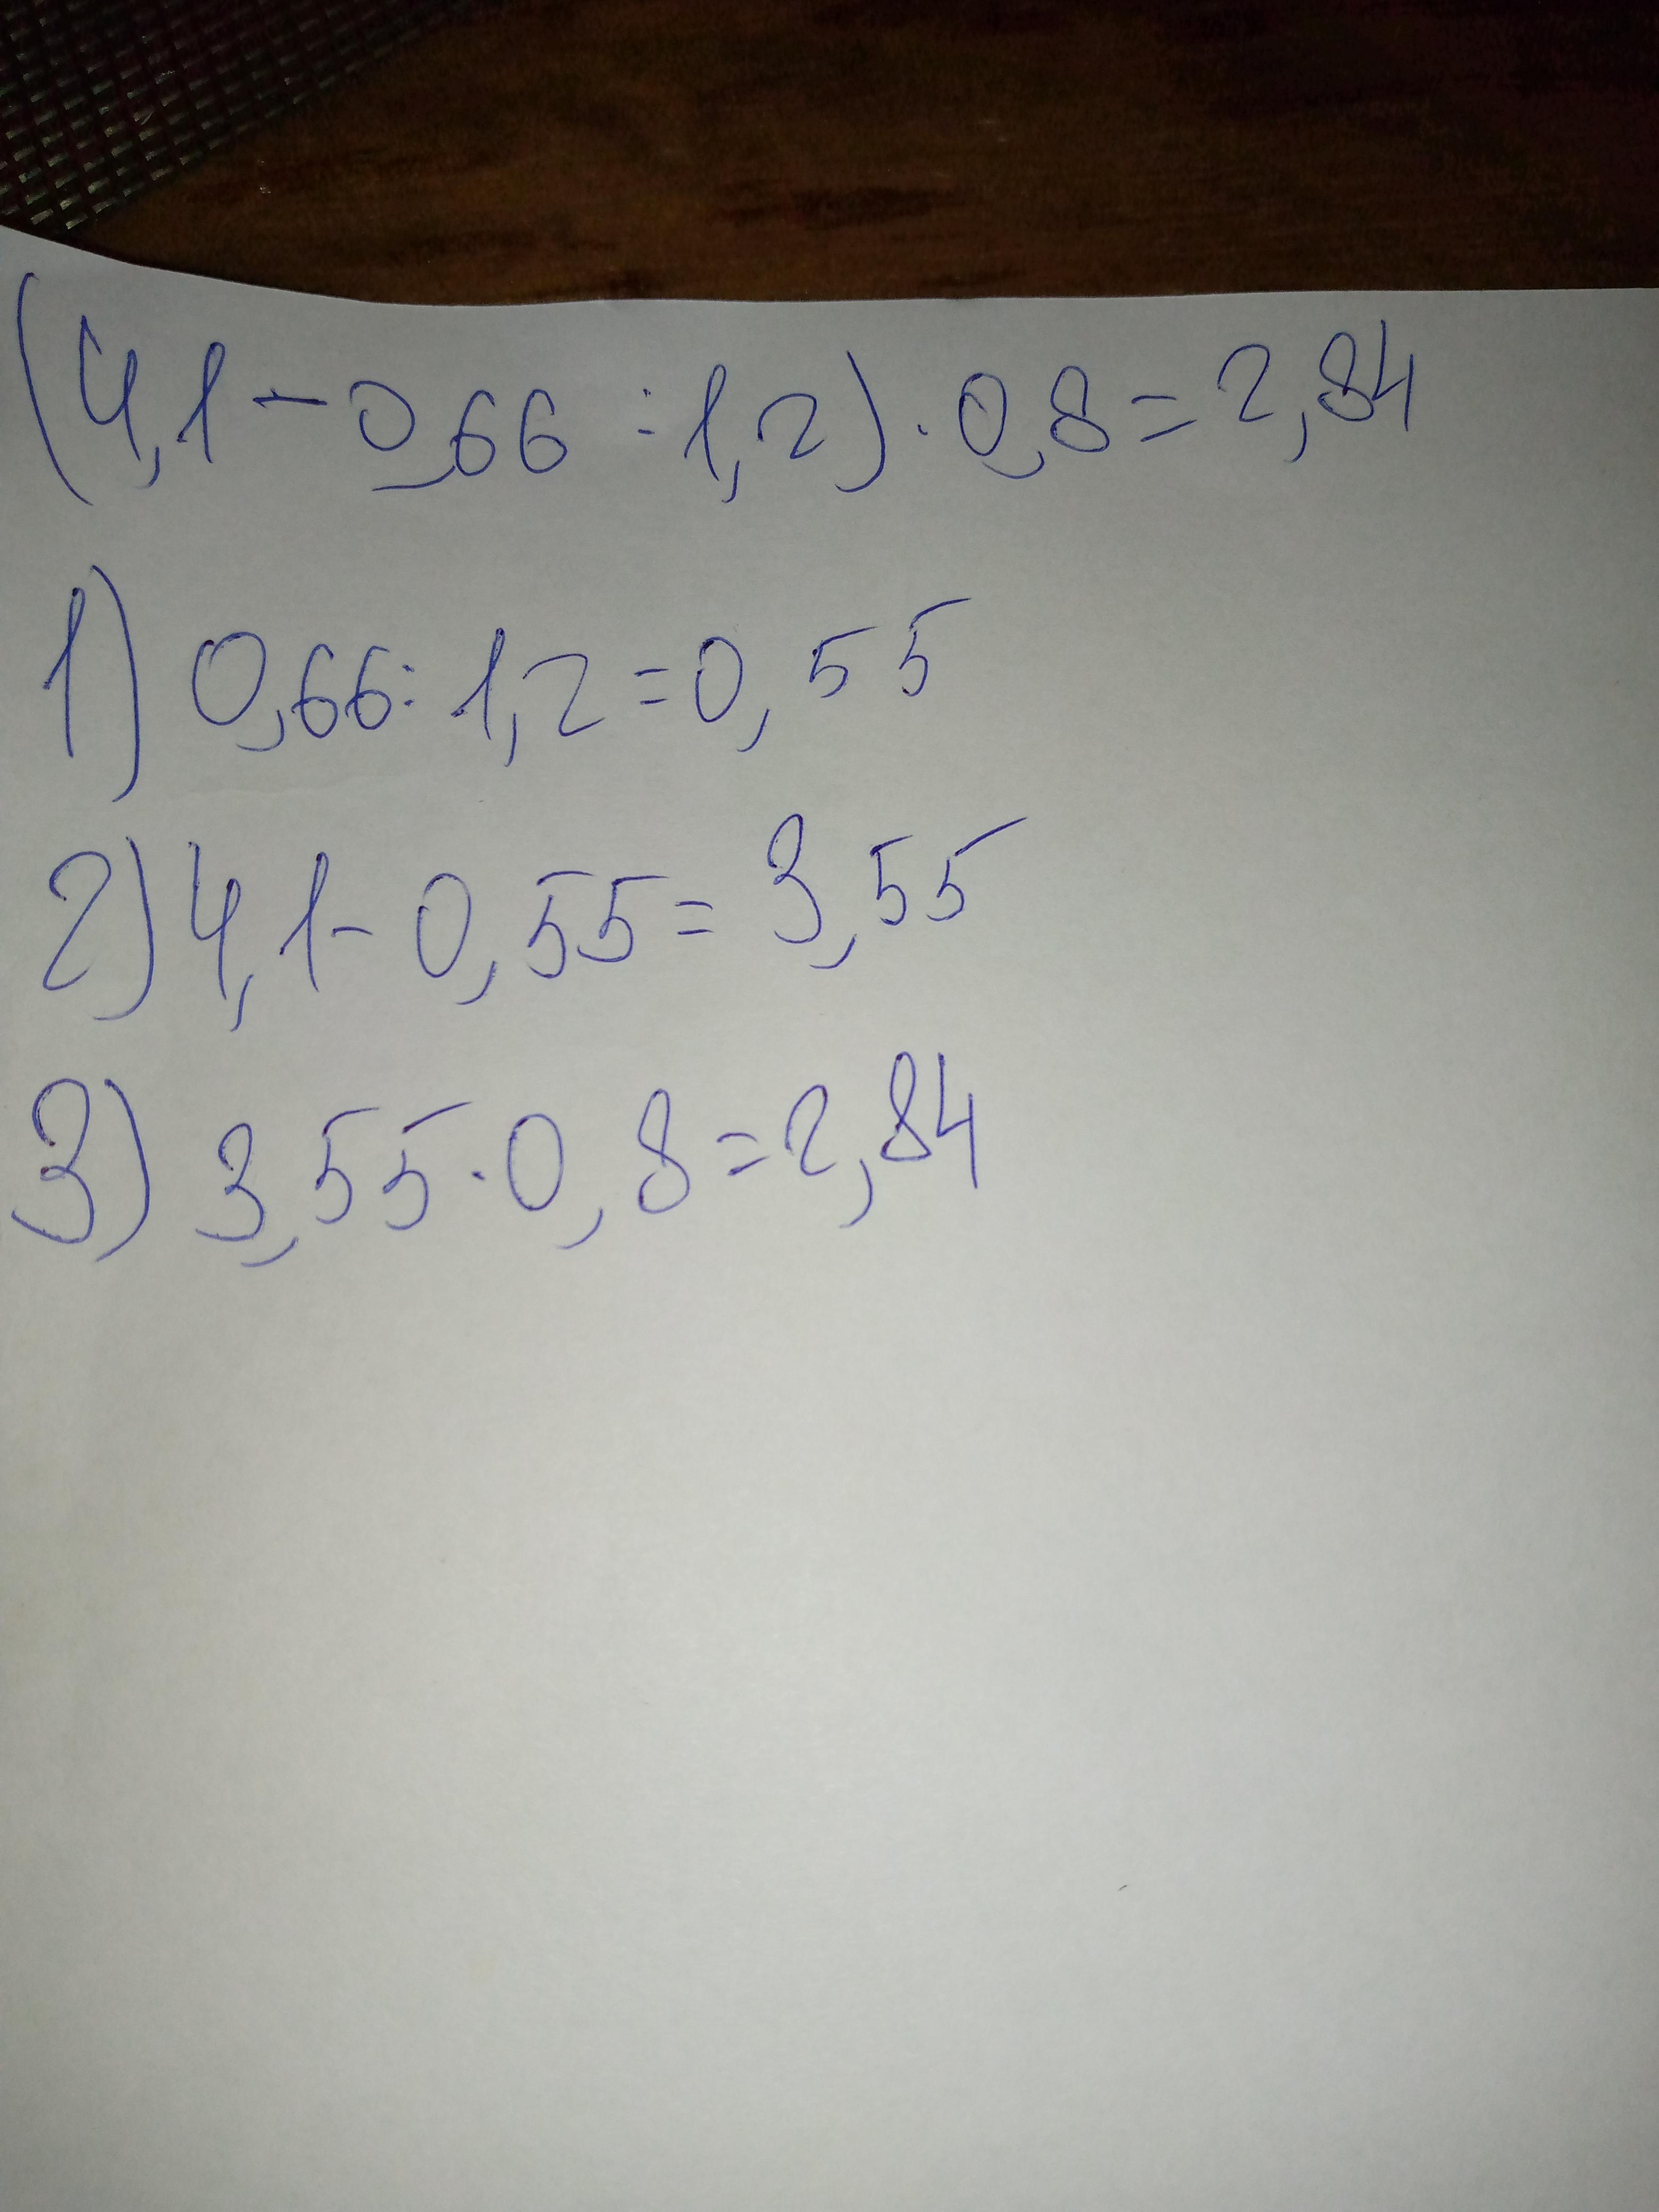 (4,1 - 0,66 : 1,2) · 0,8 = 2,84
1) 0,66 : 1,2 = 0,55
2) 4,1 - 0,55 = 3,55
3) 3,55 · 0,8 = 2,84